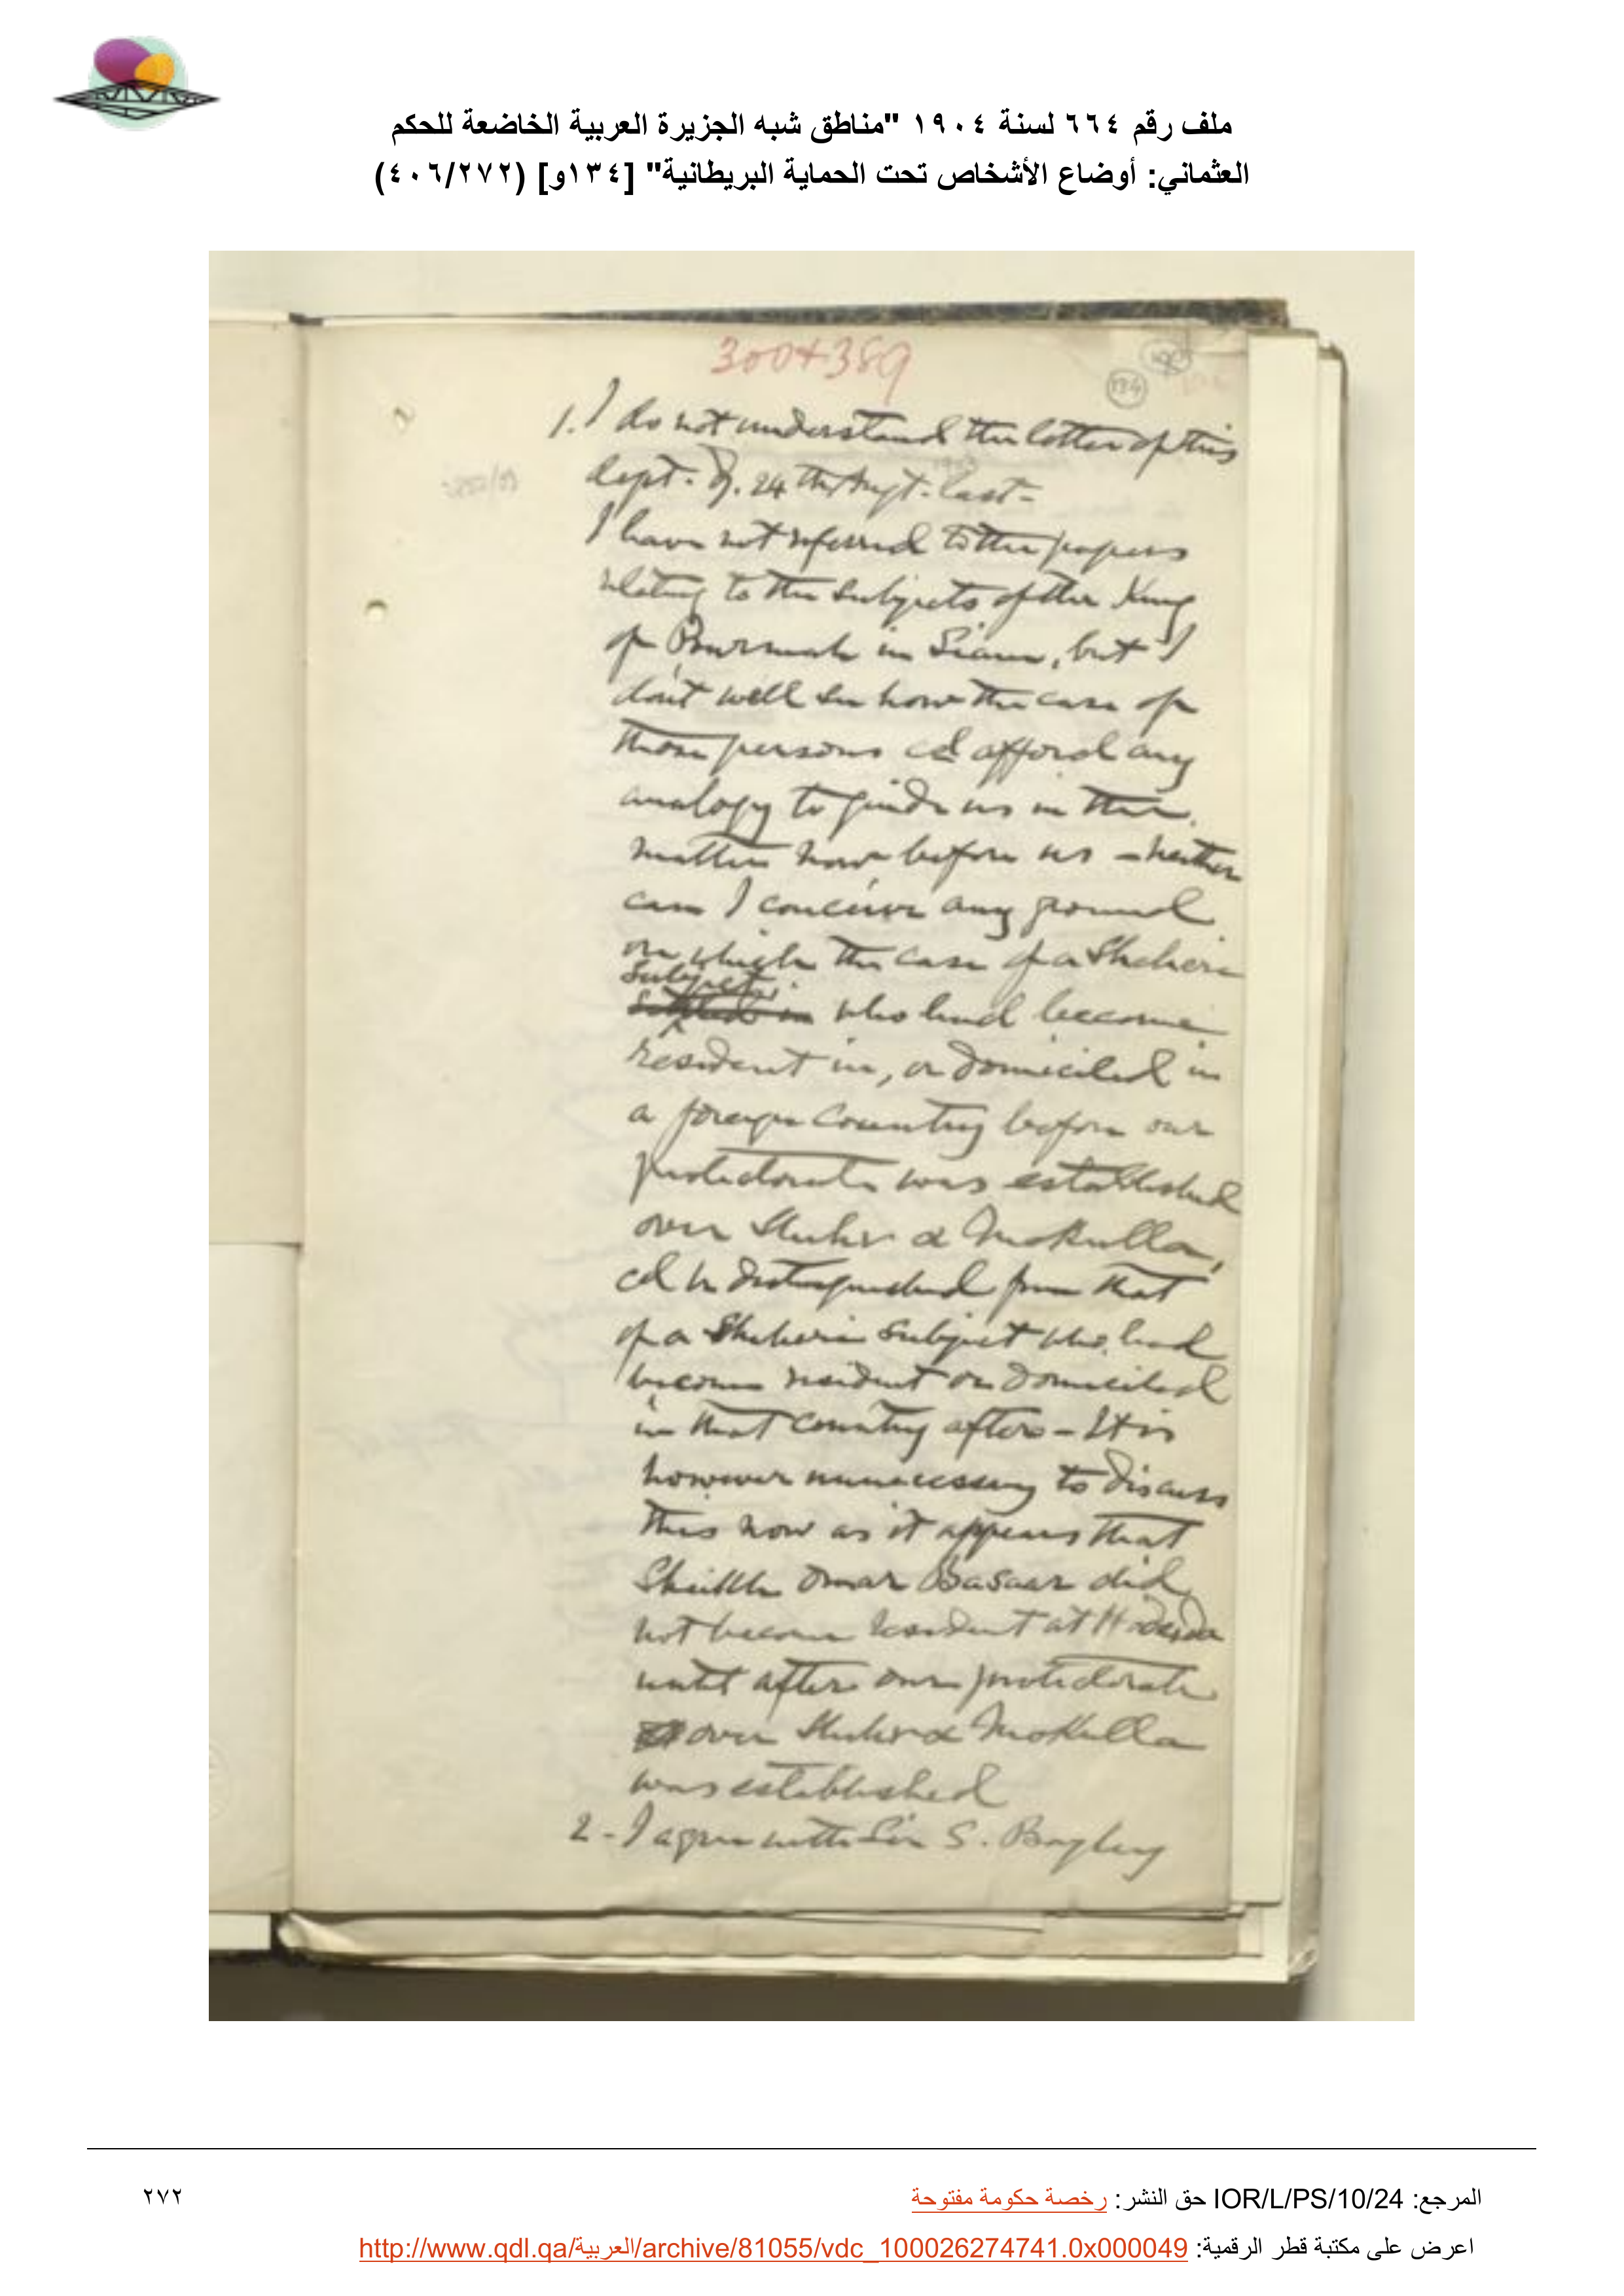 ملف رقم ٦٦٤ لسنة ١٩٠٤ "مناطق شبه الجزيرة العربية الخاضعة للحكم
العثماني: أوضاع الأشخاص تحت الحماية البريطانية" [١٣٤و] (٤٠٦/٢٧٢)
300+389
134
1. I do not understand the letter of this
dept. of 24th Augt. last-
I have not referred to the papers
relating to the subjects of the King
of Burmah in Siam, but I
don't well see how the case of
those persons cd afford any
analogy to guide us in the
matter now before us - neither
can I conceive any ground
on which the case of a Sheheri
subject
settled in who had become
resident in, or domiciled in
a foreign country before our
protectorate was established
over Shehr & Mokulla,
cd be distinguished from that
of a Sheheri subject who had
become resident or domiciled
in that country after - It is
however unnecessary to discuss
this now as it appears that
Sheikh Omar Basaar did
not become resident at Hodeida
until after our protectorate
over Shehr & Mokulla
was established
2 - I agree with Sir S. Bayley
المرجع: IOR/L/PS/10/24 حق النشر: رخصة حكومة مفتوحة
٢٧٢
اعرض على مكتبة قطر الرقمية: http://www.qdl.qa/العربية/archive/81055/vdc_100026274741.0x000049